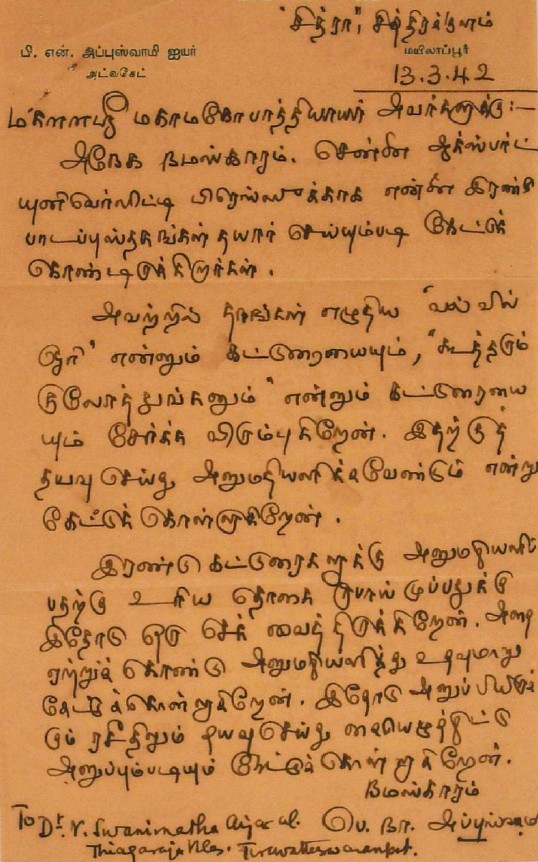 "சித்ரா", சித்திரக்குளம்
பி. என். அப்புஸ்வாமி ஐயர்
அட்வகேட்
மயிலாப்பூர்
13.3.42
மகாமகோபாத்தியாயர் அவர்களுக்கு:—
அநேக நமஸ்காரம். சென்னை ஆக்ஸ்பர்ட்
யுனிவெர்ஸிட்டி பிரெஸ்ஸுக்காக என்னை இரண்டு
பாடப்புஸ்தகங்கள் தயார் செய்யும்படி கேட்டுக்
கொண்டிருக்கிறார்கள்.
அவற்றில் தாங்கள் எழுதிய "வல் வில்
ஓரி" என்னும் கட்டுரையையும், "கூத்தரும்
குலோத்துங்கனும்" என்னும் கட்டுரையை
யும் சேர்க்க விரும்புகிறேன். இதற்குத்
தயவு செய்து அனுமதியளிக்கவேண்டும் என்று
கேட்டுக் கொள்ளுகிறேன்.
இரண்டு கட்டுரைகளுக்கு அனுமதியளிப்
பதற்கு உரிய தொகை ரூபாய் முப்பதுக்கு
இதோடு ஒரு செக் வைத்திருக்கிறேன். அதை
ஏற்றுக் கொண்டு அனுமதியளித்து உதவுமாறு
கேட்டுக்கொள்ளுகிறேன். இதோடு அனுப்பியிருக்கு
ம் ரசீதிலும் தயவுசெய்து கையெழுத்திட்டு
அனுப்பும்படியும் கேட்டுக் கொள்ளுகிறேன்.
நமஸ்காரம்
பெ. நா. அப்புஸ்வாமி
To Dr. V. Swaminatha Aiyar
Thiagaraja Vilas, Tiruvatteswaranpet.